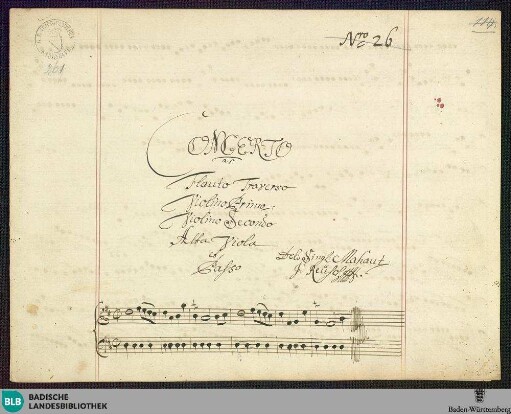 Nro 26
114.
261
CONCERTO
a 5
Flauto Traverso
Violino Primo
Violino Secondo
Alto Viola
et
Basso
Dels Singl. Mahaut
BLB BADISCHE
LANDESBIBLIOTHEK
Baden-Württemberg